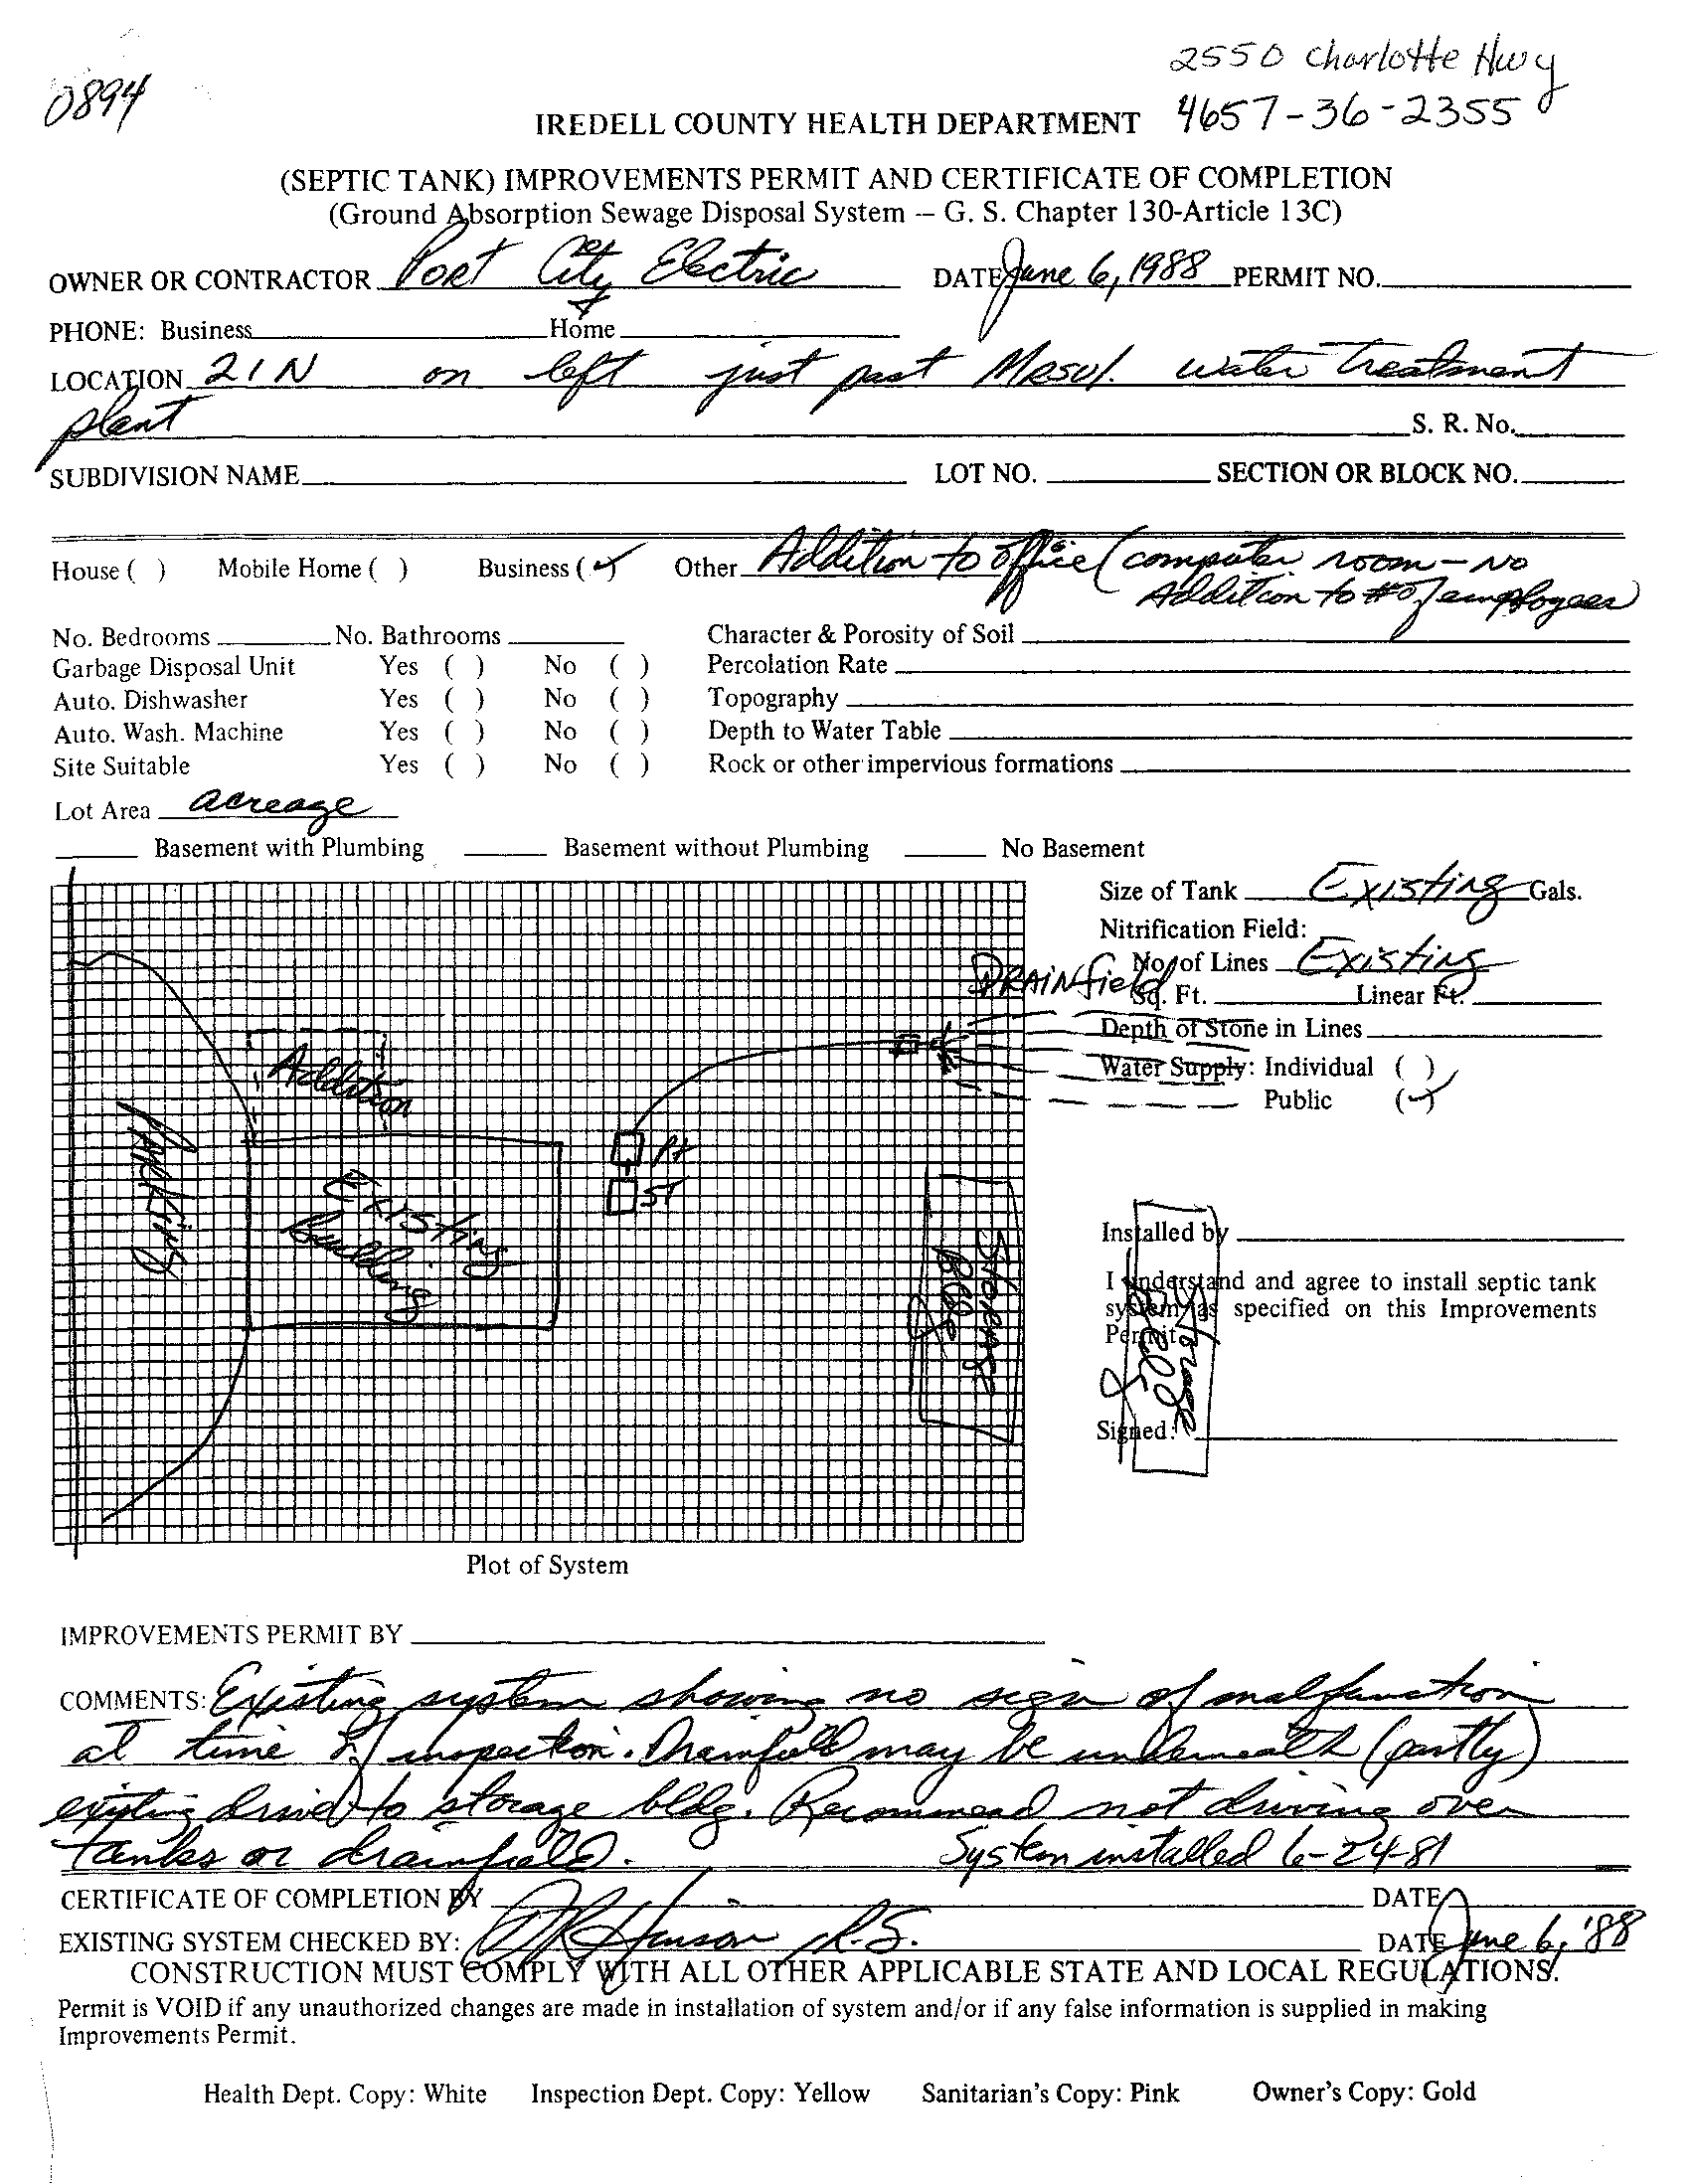 2550 Charlotte Hwy
0894
IREDELL COUNTY HEALTH DEPARTMENT 4657-36-2355
(SEPTIC TANK) IMPROVEMENTS PERMIT AND CERTIFICATE OF COMPLETION
(Ground Absorption Sewage Disposal System -- G. S. Chapter 130-Article 13C)
OWNER OR CONTRACTOR Port City Electric DATE June 6, 1988 PERMIT NO.
PHONE: Business Home
LOCATION 21N on left just past Mrsvl. water treatment
plant S. R. No.
SUBDIVISION NAME LOT NO. SECTION OR BLOCK NO.
House ( ) Mobile Home ( ) Business (✓) Other Addition to office (computer room - no
Addition to # of employees)
No. Bedrooms No. Bathrooms Character & Porosity of Soil
Garbage Disposal Unit Yes ( ) No ( ) Percolation Rate
Auto. Dishwasher Yes ( ) No ( ) Topography
Auto. Wash. Machine Yes ( ) No ( ) Depth to Water Table
Site Suitable Yes ( ) No ( ) Rock or other impervious formations
Lot Area acreage
Basement with Plumbing Basement without Plumbing No Basement
Size of Tank Existing Gals.
Nitrification Field:
No. of Lines Existing
DRAINfield
Sq. Ft. Linear Ft.
Depth of Stone in Lines
Water Supply: Individual ( )
Public (✓)
Addition
PARKING
Existing
building
Pt
ST
Storage
Bldg
Installed by
I understand and agree to install septic tank
system as specified on this Improvements
Permit.
Storage
Bldg
Signed:
Plot of System
IMPROVEMENTS PERMIT BY
COMMENTS: Existing system showing no sign of malfunction
at time of inspection. Drainfield may be underneath (partly)
existing drive to storage bldg. Recommend not driving over
tanks or drainfield. System installed 6-24-81
CERTIFICATE OF COMPLETION BY DATE
EXISTING SYSTEM CHECKED BY: R.S. DATE June 6, '88
CONSTRUCTION MUST COMPLY WITH ALL OTHER APPLICABLE STATE AND LOCAL REGULATIONS.
Permit is VOID if any unauthorized changes are made in installation of system and/or if any false information is supplied in making
Improvements Permit.
Health Dept. Copy: White Inspection Dept. Copy: Yellow Sanitarian's Copy: Pink Owner's Copy: Gold